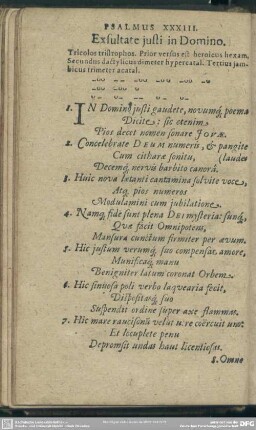 PSALMUS XXXIII.
Exsultate justi in Domino.
Tricolos tristrophos. Prior versus est heroicus hexam.
Secundus dactylicus dimeter hypercatal. Tertius jam-
bicus trimeter acatal.
1. IN Domino justi gaudete, novumq́; poema
Dicite: sic etenim
Pios decet nomen sonare JOVÆ.
2. Concelebrate DEUM numeris, & pangite
Cum citharæ sonitu, (laudes
Decemq́; nervû barbito canorâ.
3. Huic nova lætanti cantamina solvite voce,
Atq; pios numeros
Modulamini cum jubilatione.
4. Namq; fide sunt plena DEI mysteria: sunq́;
Quæ facit Omnipotens,
Mansura cunctum firmiter per ævum.
5. Hic justum verumq́; suo compensat amore,
Munificaq́; manu
Benigniter latum coronat Orbem.
6. Hic sinuosa poli verbo laquearia fecit,
Dispositaq́; suo
Suspendit ordine super axe flammas.
7. Hic mare raucisonum velut utre coërcuit uno:
Et locuplete penu
Depromsit undas haut licentiosas.
8. Omne